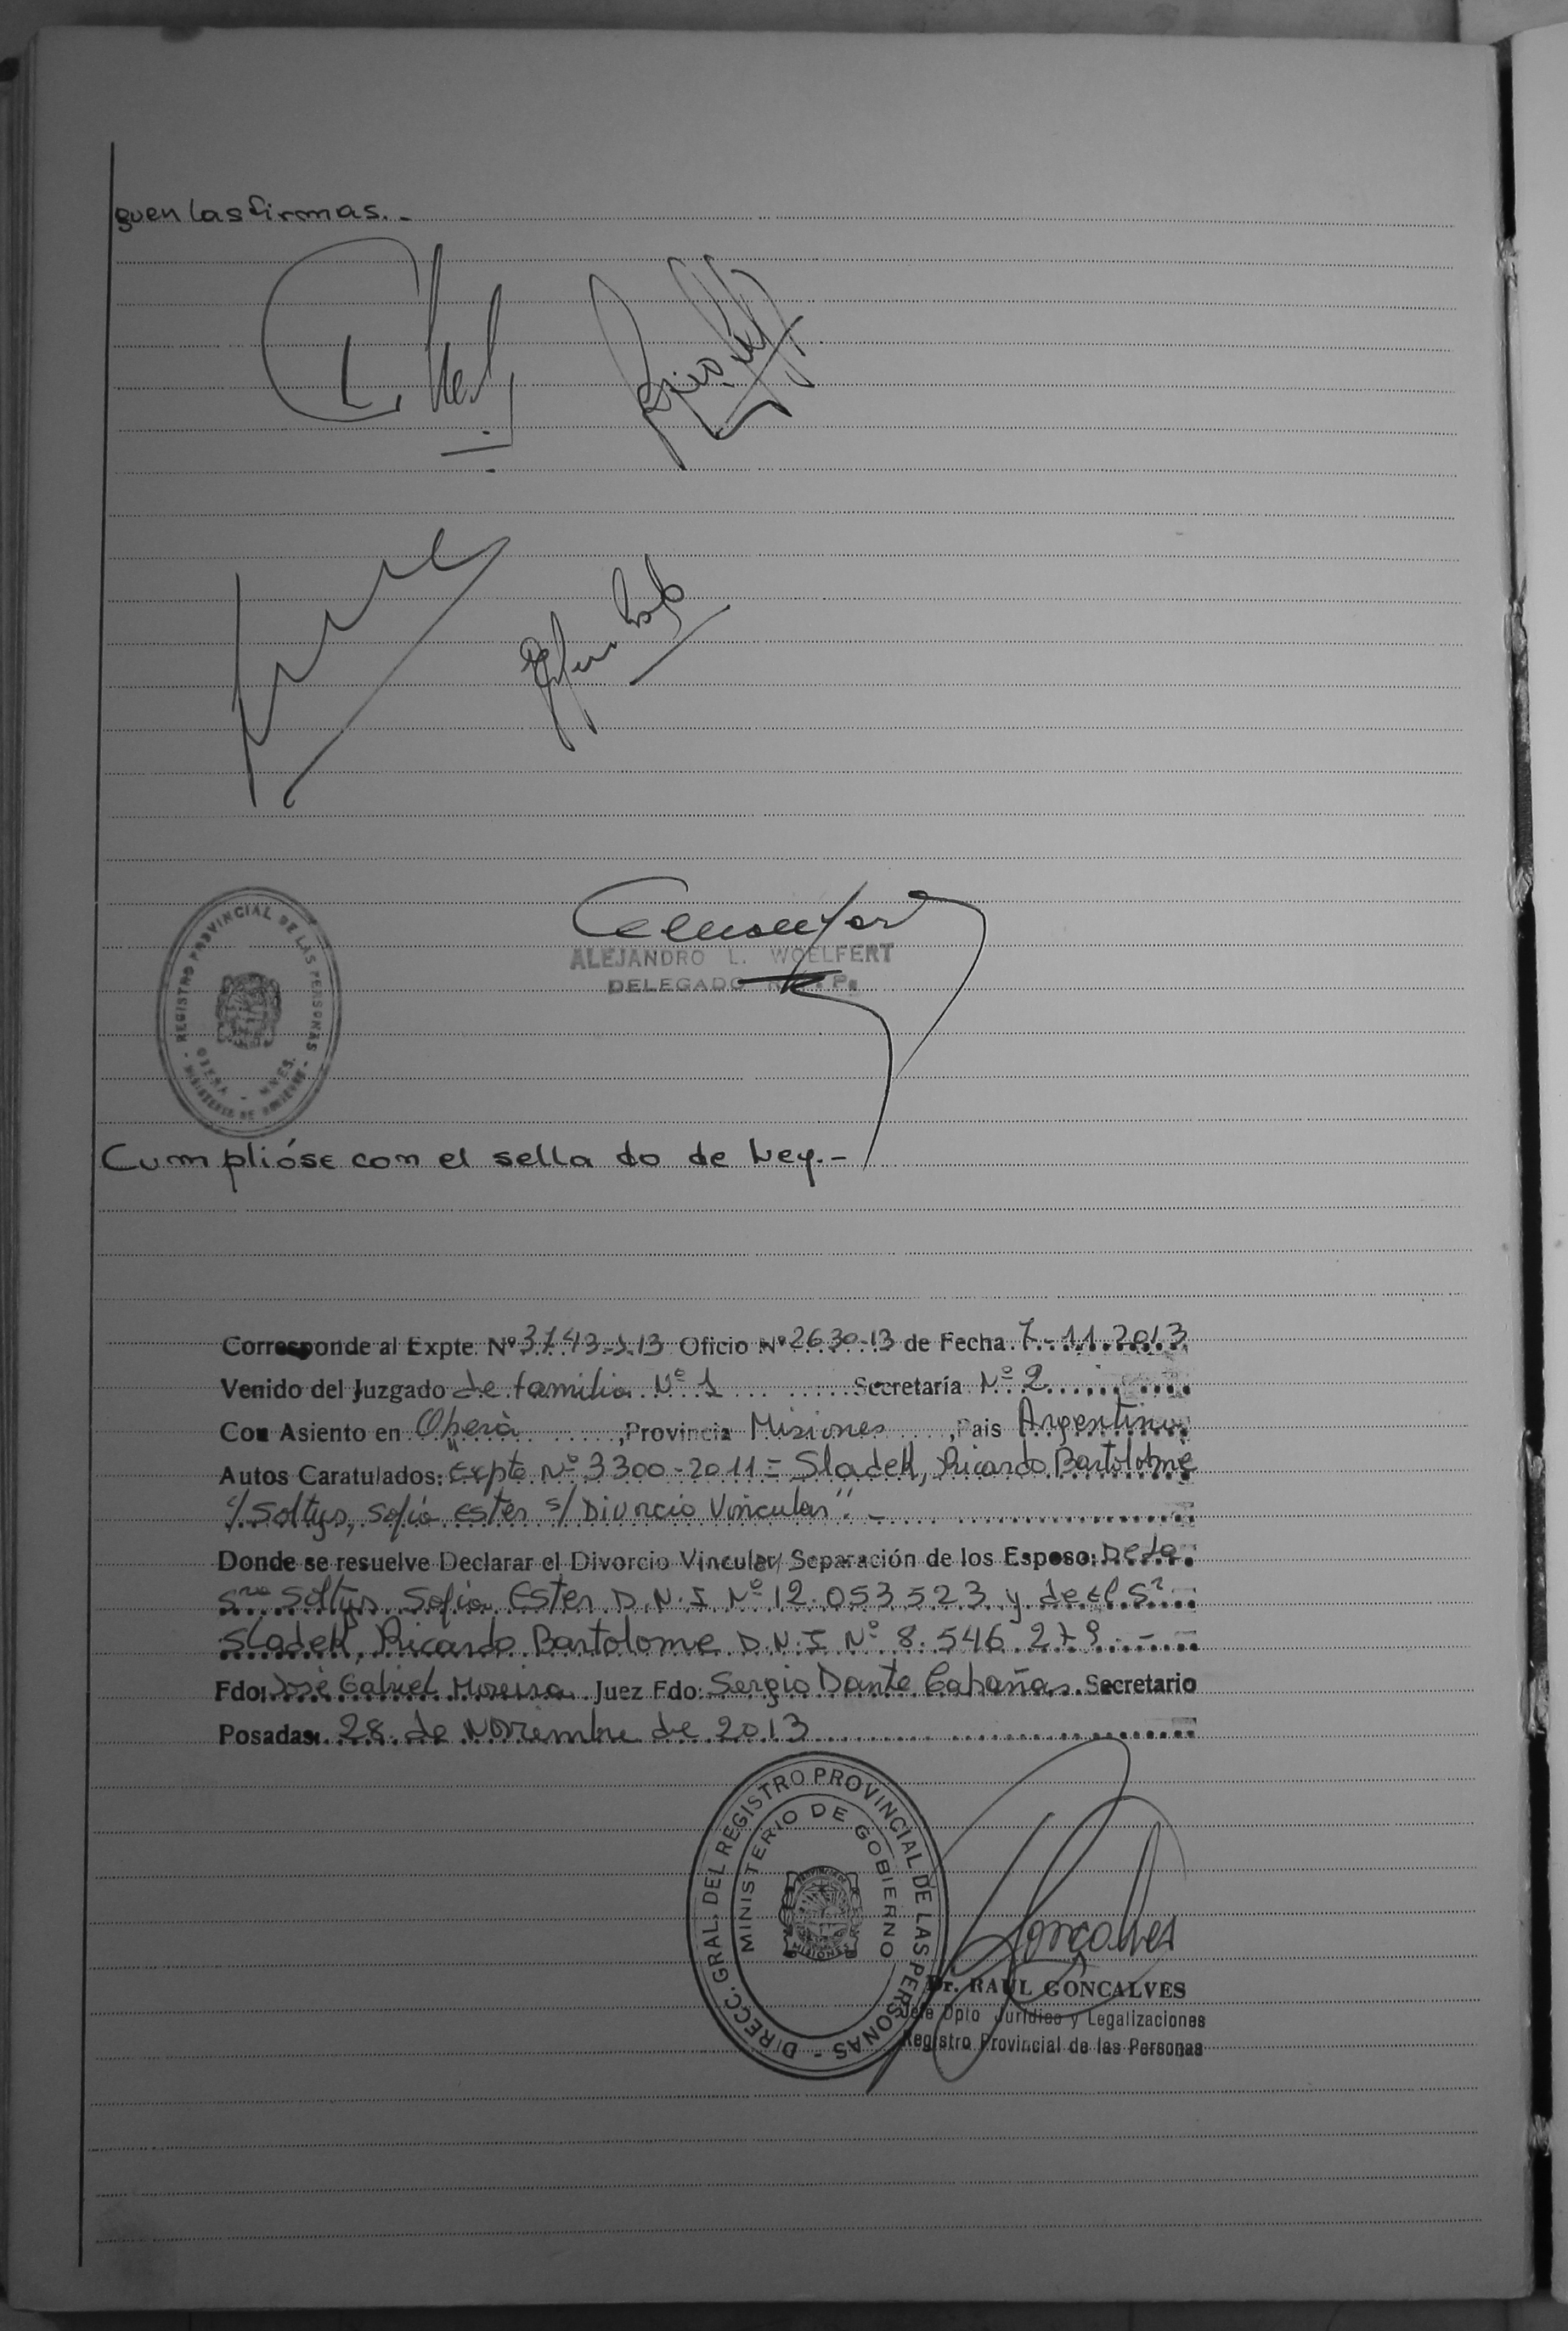 guen las firmas.-
REGISTRO PROVINCIAL DE LAS PERSONAS
OBERA - MNES.
- MINISTERIO DE GOBIERNO -
ALEJANDRO L. WOELFERT
DELEGADO R. P. P.
Cumplióse con el sella do de Ley.-
Corresponde al Expte Nº 3743-S-13 Oficio Nº 2630-13 de Fecha 7-11-2013
Venido del Juzgado de familia Nº 1 Secretaría Nº 2
Con Asiento en Oberá, Provincia Misiones, Pais Argentina
Autos Caratulados: "Expte Nº 3300-2011 = Sladek, Ricardo Bartolome
c/ Soltys, Sofia Ester s/ Divorcio Vincular". -
Donde se resuelve Declarar el Divorcio Vincular/ Separación de los Esposo: De la
Sra Soltys Sofia Ester D.N.I Nº 12.053523 y de el Sr
Sladek, Ricardo Bartolome D.N.I Nº 8.546.279.- -
Fdo: José Gabriel Moreira Juez Fdo: Sergio Dante Cabañas Secretario
Posadas: 28 de Noviembre de 2013
DIRECC. GRAL. DEL REGISTRO PROVINCIAL DE LAS PERSONAS -
MINISTERIO DE GOBIERNO
MISIONES
Goncalves
Dr. RAUL GONCALVES
Jefe Dpto Jurídico y Legalizaciones
Registro Provincial de las Personas